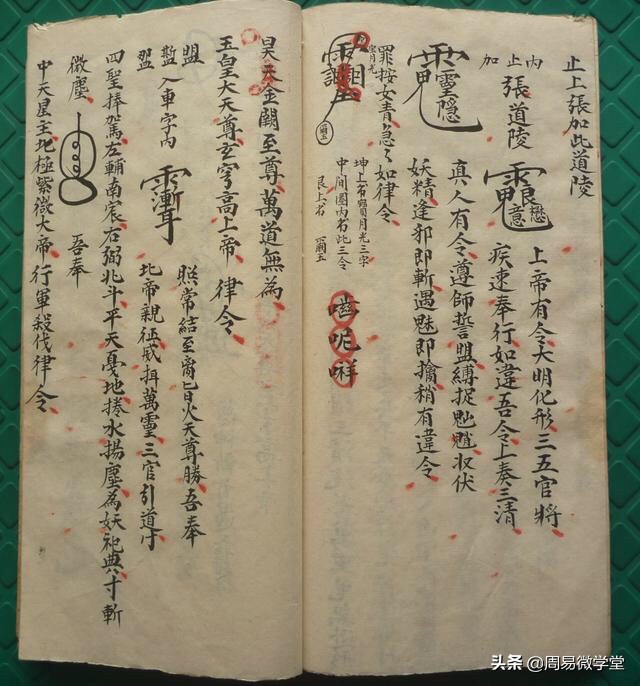 止上張加此道陵
內止加
張道陵
上帝有令大明化形三五官將
疾速奉行如違吾令上奏三清
靈隠
真人有令遵師誓盟縛捉魁魈収伏
妖精逢邪即斬遇魅即擒稍有違令
罪按女青急々如律令
坤上有賔月光三字
中间圏内有此三令
艮上有
昊天金闕至尊萬道無為
玉皇大天尊玄穹高上帝 律令
照常結至
日火天尊勝吾奉
盟
入車字内
北帝親征威揖萬靈三官引道寸
四聖捧駕左輔南宸右弼北斗平天憂地捲水揚塵為妖祀典寸斬
微塵
吾奉
中天星主北極紫微大帝 行軍殺伐律令
头条 @周易微学堂